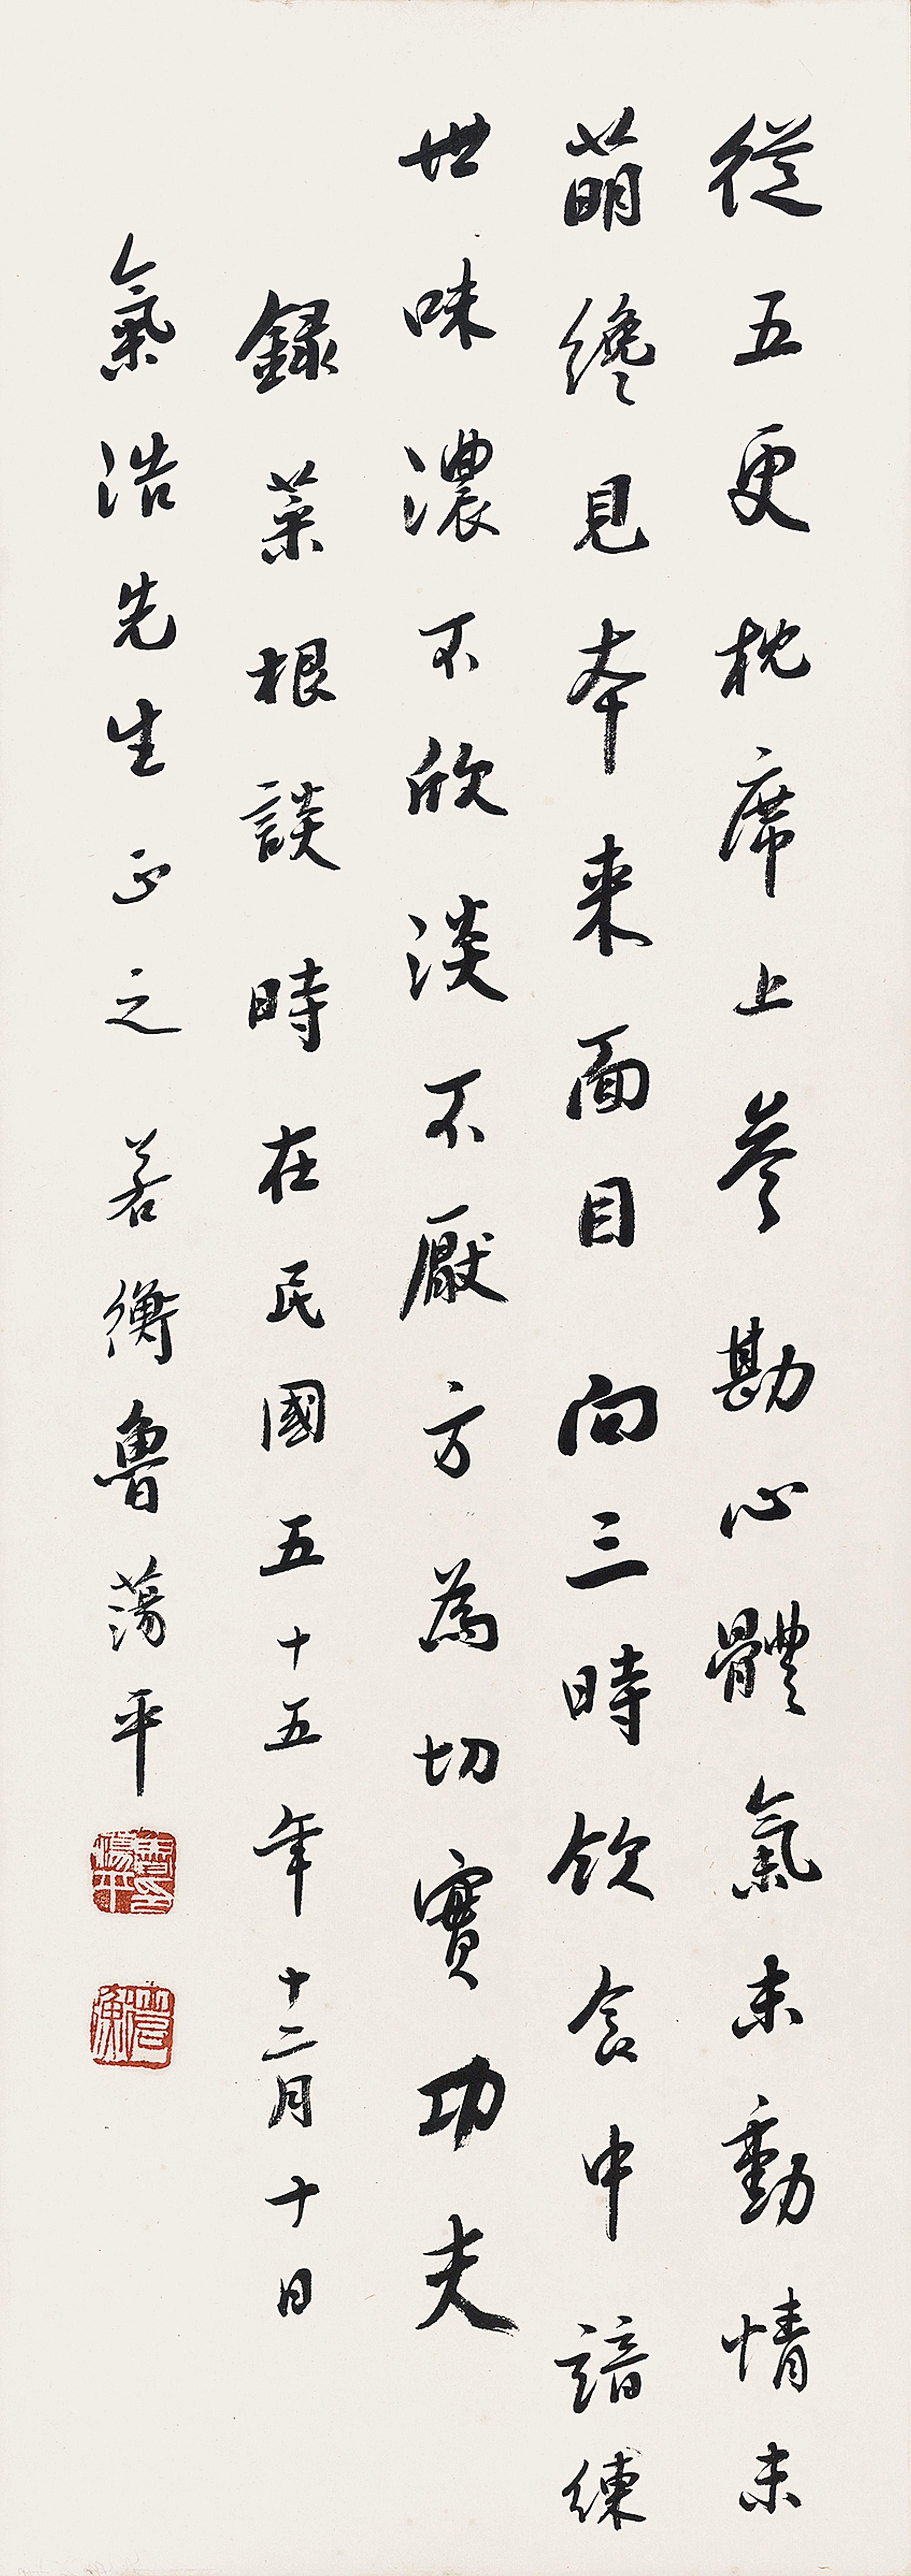 從五更枕席上參勘心體氣未動情未
萌纔見本来面目向三時飲食中諳練
世味濃不欣淡不厭方為切實功夫
錄菜根談時在民國五十五年十二月十日
氣浩先生正之 若衡魯蕩平
魯蕩平印
若衡